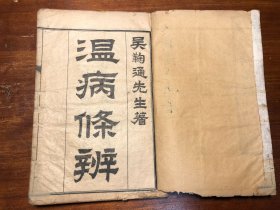 吴鞠通先生著
温病條辨